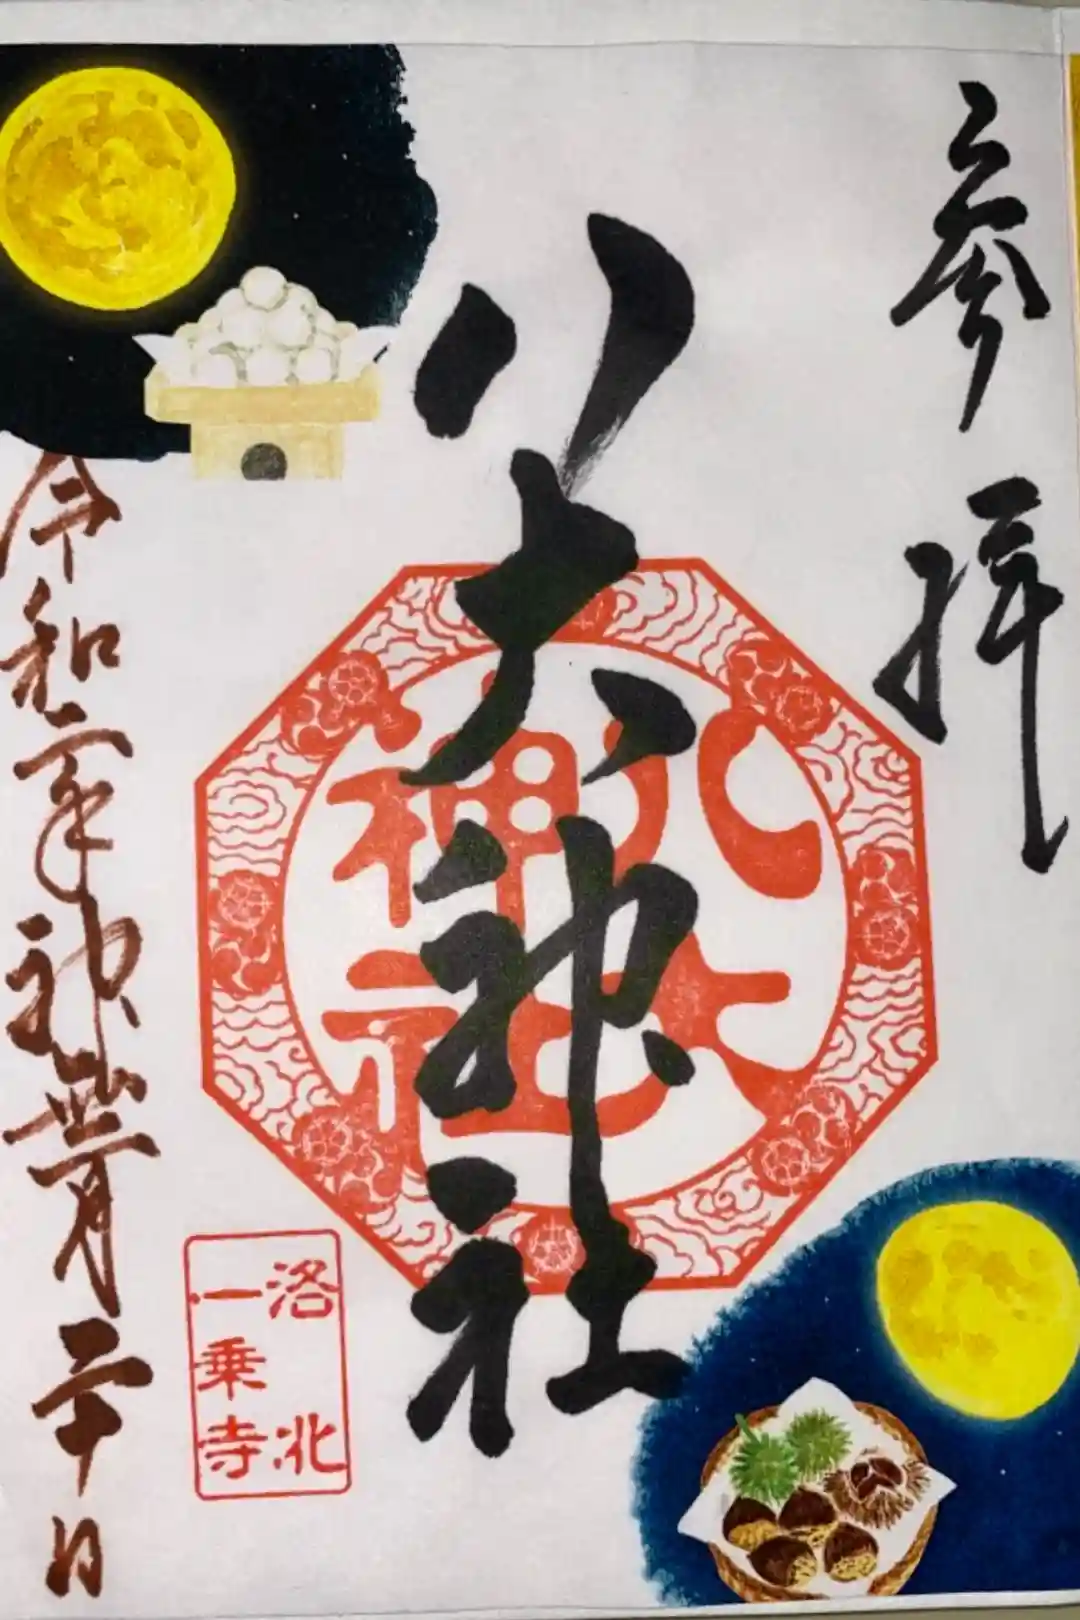 参拝
八大神社
八大
神社
洛北
一乗寺
令和二年神無月二十日